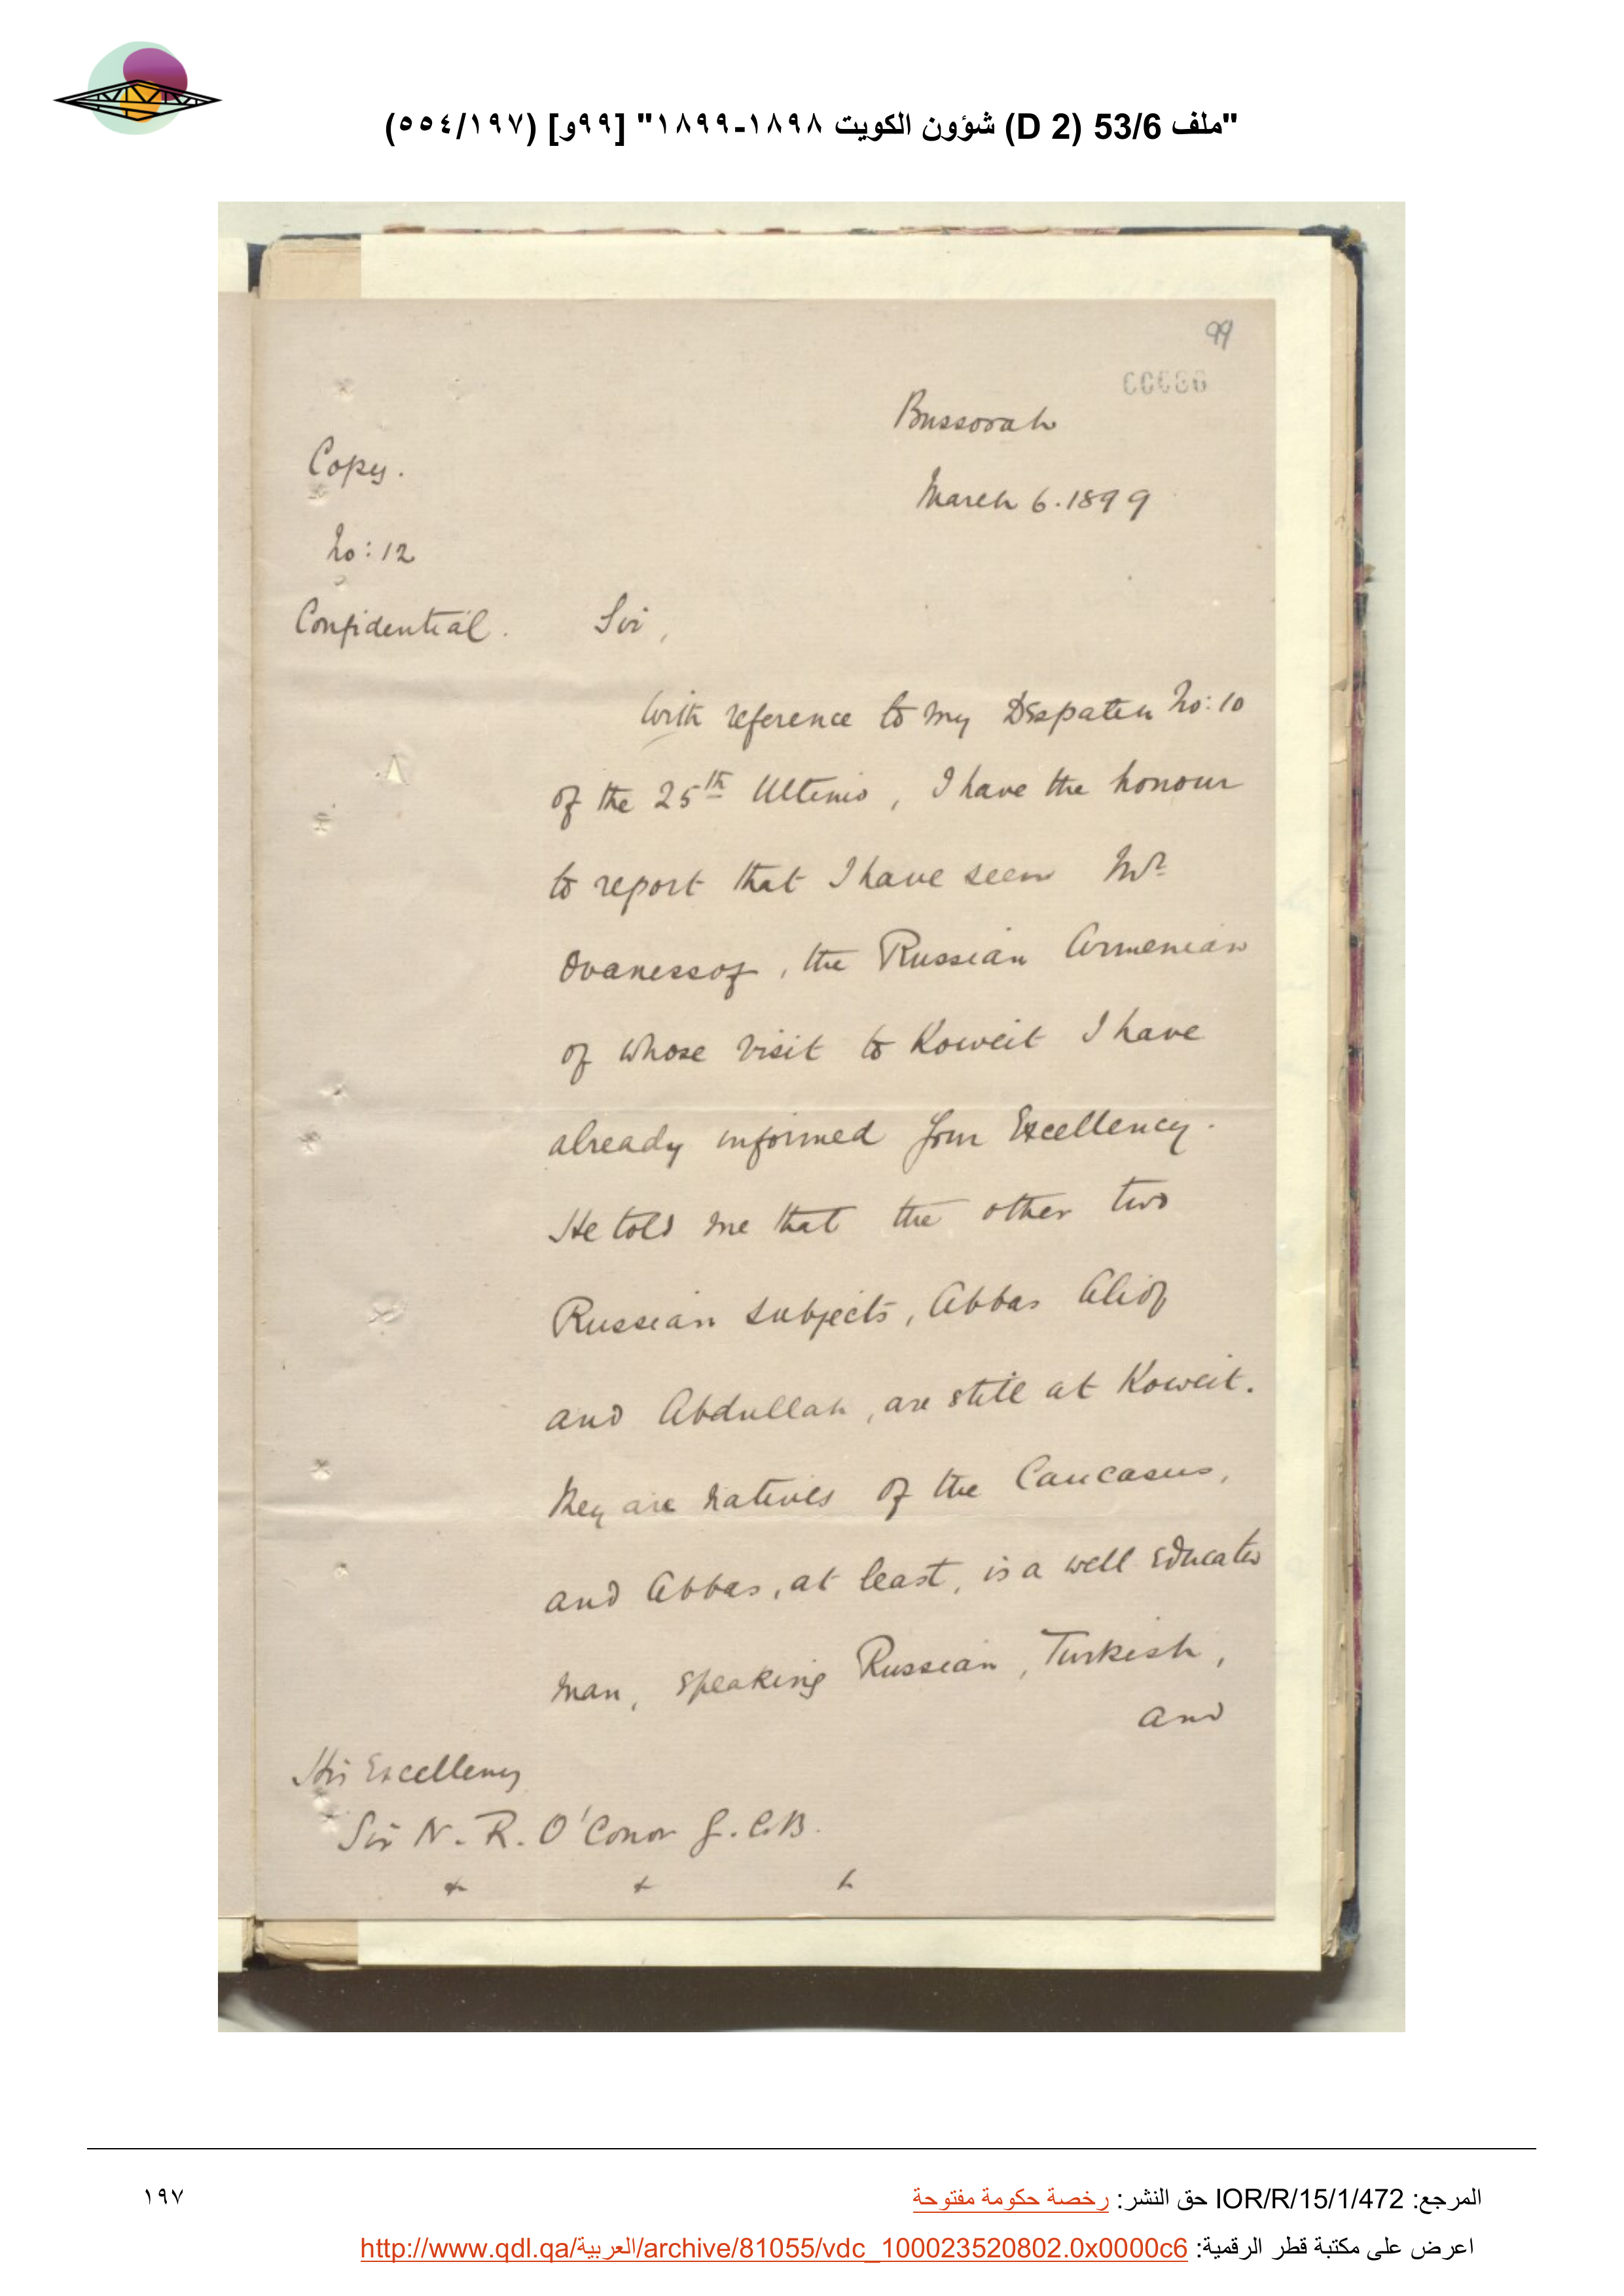 "ملف 53/6 (D 2) شؤون الكويت ١٨٩٨-١٨٩٩" [٩٩و] (٥٥٤/١٩٧)
99
Bussorah
Copy.
March 6. 1899
No: 12
Confidential. Sir,
With reference to my Dispatch No: 10
of the 25th Ultimo, I have the honour
to report that I have seen Mr
Ovanessof, the Russian Armenian
of whose visit to Koweit I have
already informed Your Excellency.
He told me that the other two
Russian subjects, Abbas Aliof
and Abdullah, are still at Koweit.
They are natives of the Caucasus,
and Abbas, at least, is a well educated
man, speaking Russian, Turkish,
and
His Excellency
Sir N. R. O'Conor G.C.B.
المرجع: IOR/R/15/1/472 حق النشر: رخصة حكومة مفتوحة
١٩٧
اعرض على مكتبة قطر الرقمية: http://www.qdl.qa/العربية/archive/81055/vdc_100023520802.0x0000c6